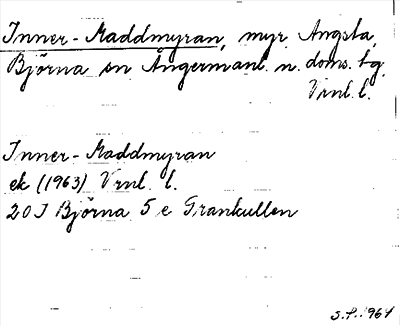 Inner-Maddmyran, myr Angsta,
Björna sn Ångermanl. n. doms. tg.
Vrnl. l.
Inner-Maddmyran
ek (1963) Vrnl. l.
20J Björna 5 e Trankullen
S.P. 1964